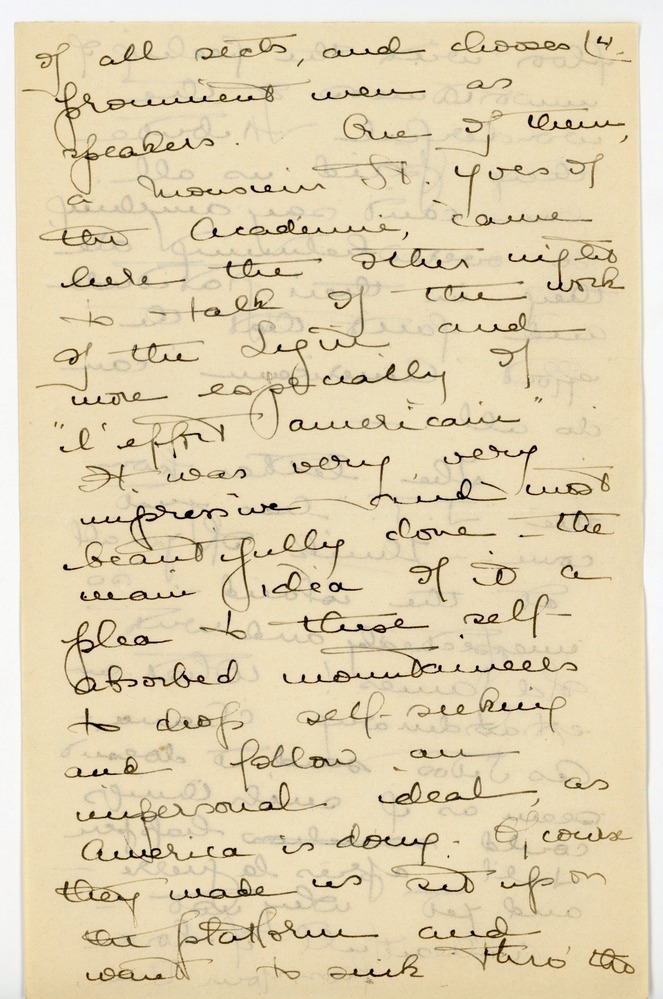 of all sects, and chooses (4.
prominent men as
speakers. One of them,
a Monsieur St. Yves of
the Academie, came
here the other night
to talk of the work
of the Ligue and
more especially of
"l'effort americain"
It was very very
impressive and most
beautifully done - the
main idea of it a
plea to these self-
absorbed mountaineers
to drop self-seeking
and follow an
impersonal ideal, as
America is doing. Of course
they made us sit up on
the platform and
want to sink thro' the